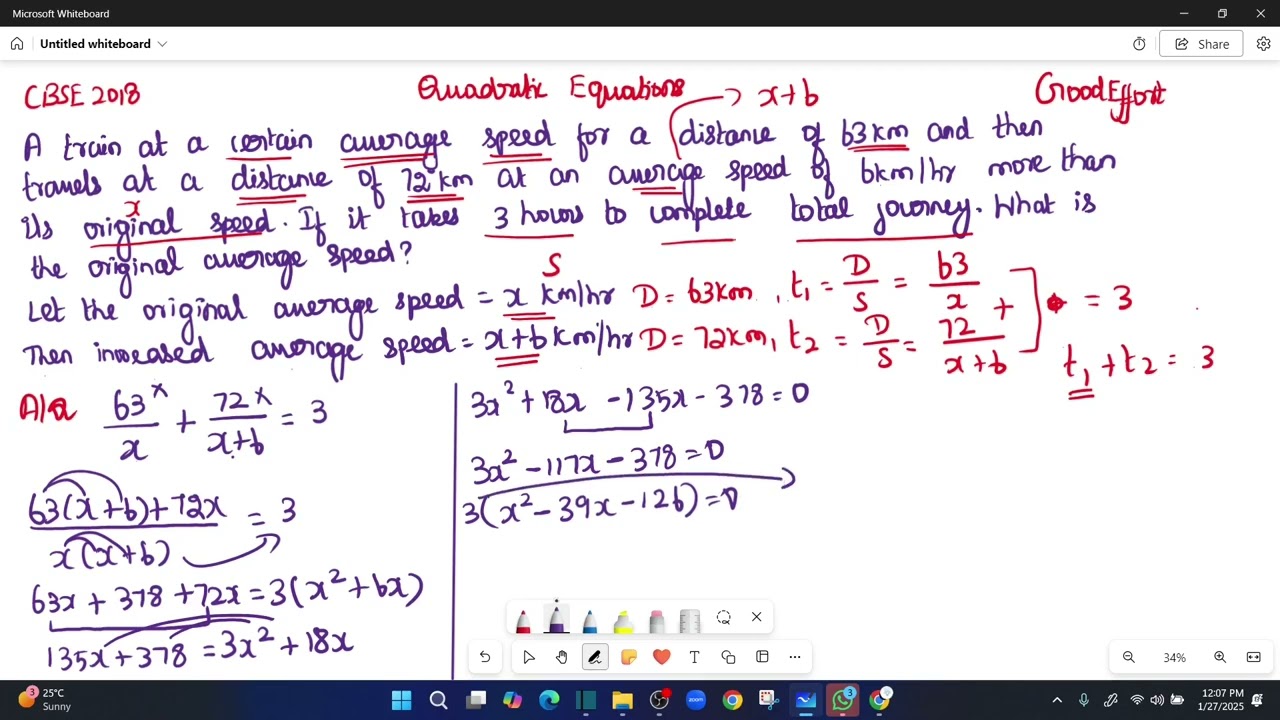 Microsoft Whiteboard
Untitled whiteboard
Share
CBSE 2018
Quadratic Equations
x+6
Good Effort
A train at a certain average speed for a distance of 63 km and then
travels at a distance of 72 km at an average speed of 6km/hr more than
x
its original speed. If it takes 3 hours to complete total journey. What is
the original average speed?
S
Let the original average speed = x km/hr D = 63km, t₁ = D/S = 63/x + = 3
Then increased average speed = x+6 km/hr D = 72km, t₂ = D/S = 72/(x+6)
t₁ + t₂ = 3
A/Q 63/x + 72/(x+6) = 3
(63(x+6)+72x)/(x(x+6)) = 3
63x + 378 + 72x = 3(x² + 6x)
135x + 378 = 3x² + 18x
3x² + 18x - 135x - 378 = 0
3x² - 117x - 378 = 0
3(x² - 39x - 126) = 0
34%
3
25°C
Sunny
3
12:07 PM
1/27/2025